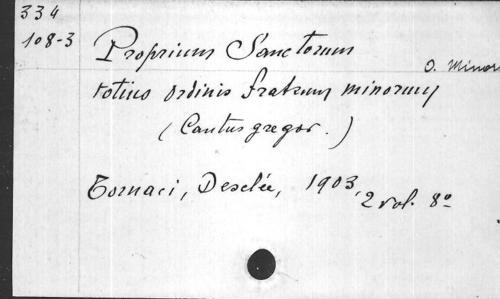 334
108-3
Proprium Sanctorum
O. Minor
totius ordinis fratrum minorum
(Cantus gregor.)
Tornaci, Desclée, 1903, 2 vol. 8º